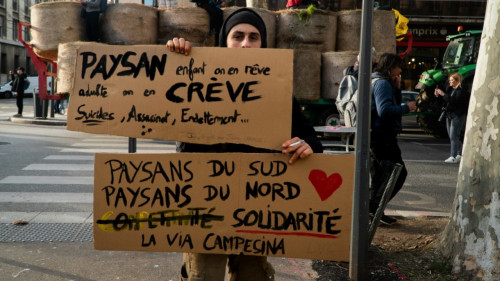 PAYSAN enfant on en rêve
adulte on en CRÈVE
Suicides, Assassinat, Endettement...
PAYSANS DU SUD
PAYSANS DU NORD
SOLIDARITÉ
LA VIA CAMPESINA